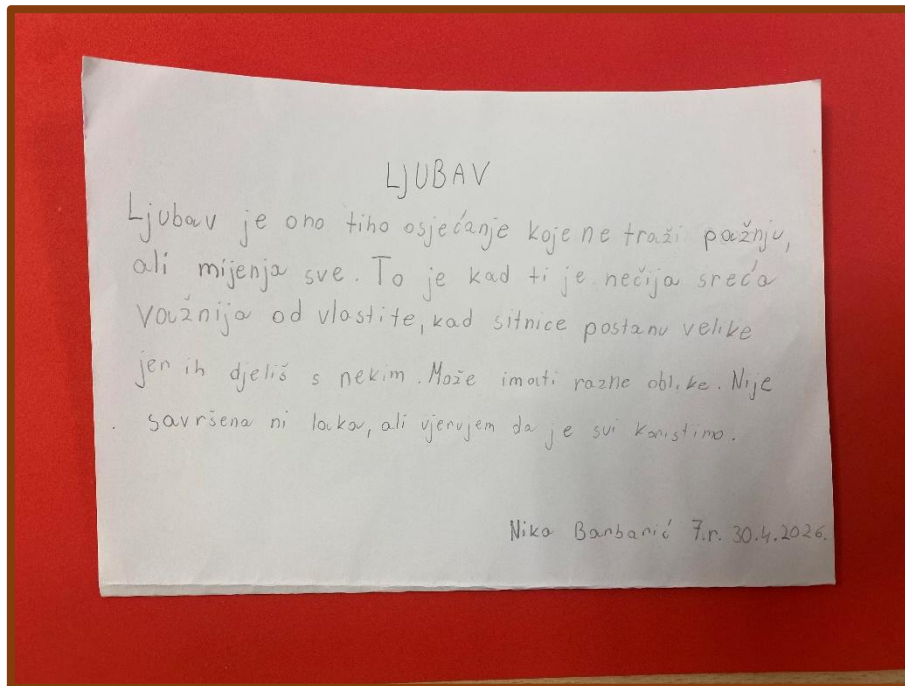 LJUBAV
Ljubav je ono tiho osjećanje koje ne traži pažnju,
ali mijenja sve. To je kad ti je nečija sreća
važnija od vlastite, kad sitnice postanu velike
jer ih djeliš s nekim. Može imati razne oblike. Nije
savršena ni laka, ali vjerujem da je svi koristimo.
Nika Barbarić 7.r. 30.4.2026.